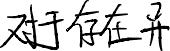 对于存在异